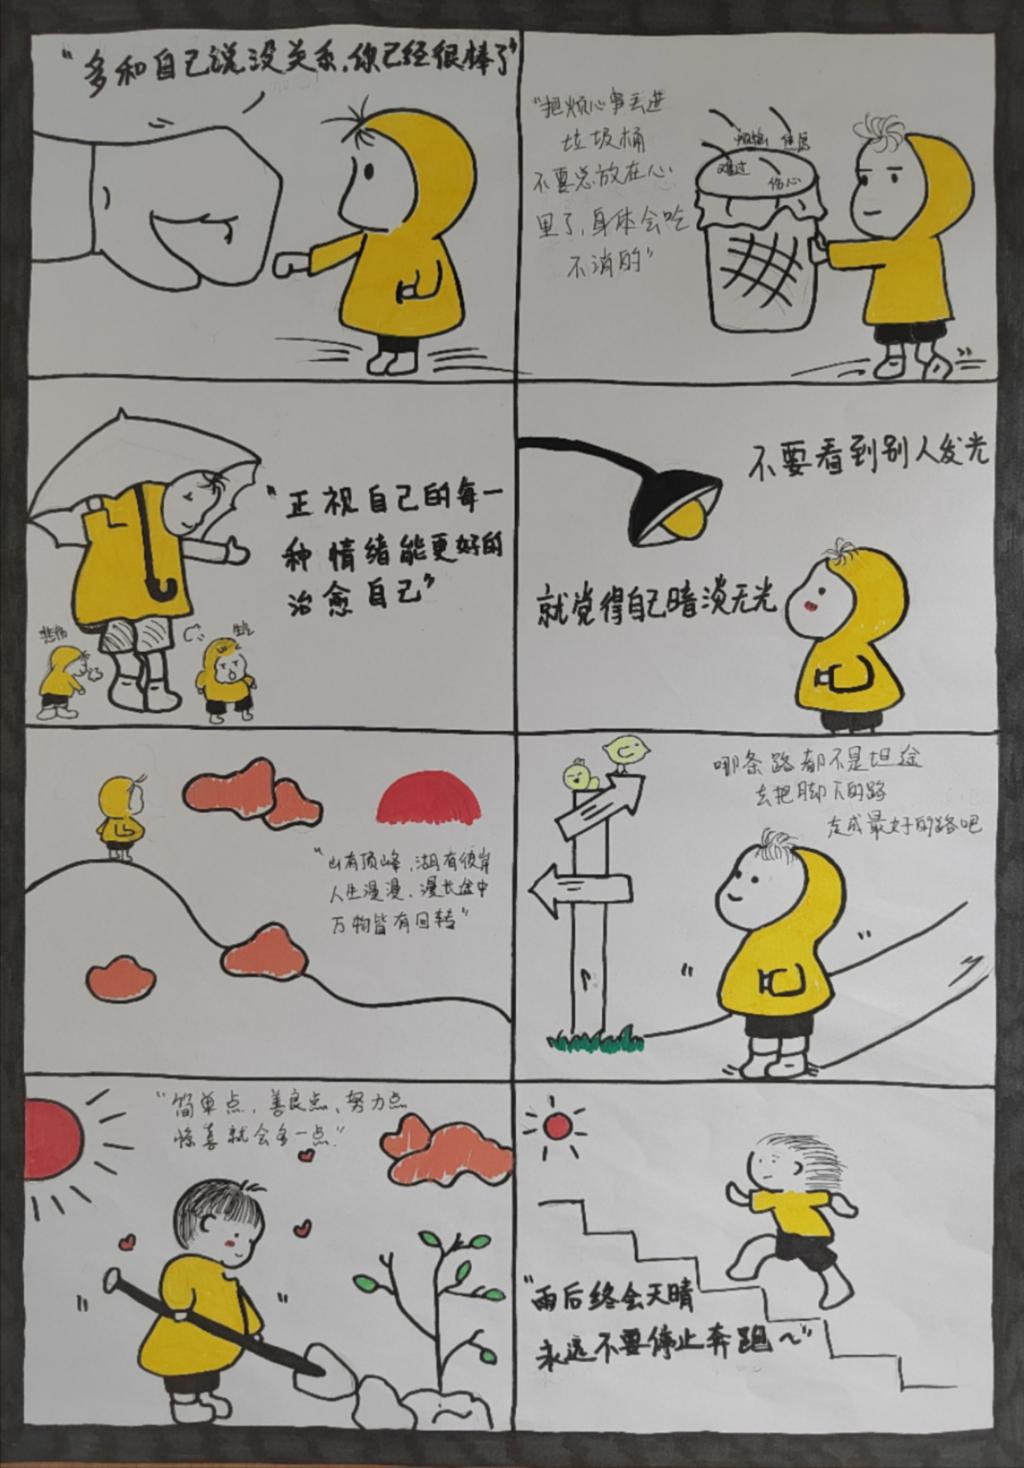 "多和自己说没关系,你已经很棒了"
"把烦心事丢进
垃圾桶
不要总放在心
里了,身体会吃
不消的"
难过
伤心
"正视自己的每一
种情绪能更好的
治愈自己"
悲伤
生气
不要看到别人发光
就觉得自己暗淡无光
"山有顶峰,湖有彼岸
人生漫漫,漫长途中
万物皆有回转"
哪条路都不是坦途
去把脚下的路
走成最好的路吧
"简单点,善良点,努力点
惊喜就会多一点."
"雨后终会天晴
永远不要停止奔跑~"